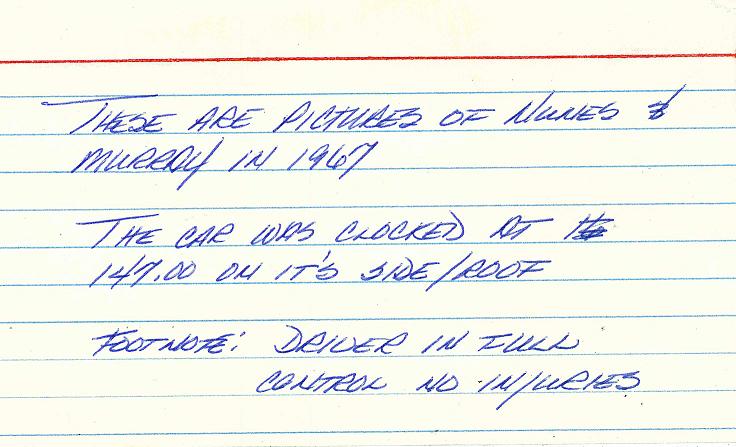 THESE ARE PICTURES OF NUNES &
MURRAY IN 1967
THE CAR WAS CLOCKED AT
147.00 ON IT'S SIDE/ROOF
FOOTNOTE: DRIVER IN FULL
CONTROL NO INJURIES